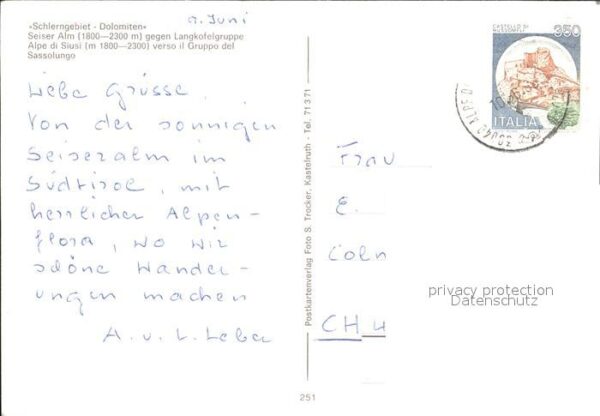 9. Juni
«Schlerngebiet - Dolomiten»
Seiser Alm (1800—2300 m) gegen Langkofelgruppe
Alpe di Siusi (m 1800—2300) verso il Gruppo del
Sassolungo
Liebe Grüsse
Von der sonnigen
Seiseralm im
Südtirol, mit
herrlicher Alpen-
flora, wo wir
schöne Wander-
ungen machen
A. u. L.
Postkartenverlag Foto S. Trocker, Kastelruth - Tel. 71371
251
CASTELLO DI
350
ITALIA
Frau
E.
CH 4
privacy protection
Datenschutz